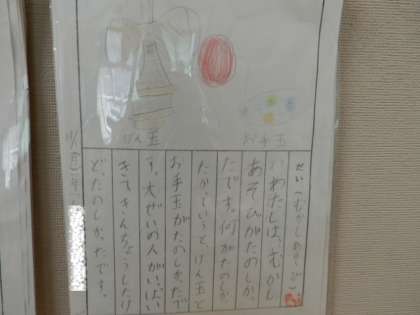 けん玉
お手玉
せいかつむかしのあそび
わたしは、むかし
あそびがたのしか
たです。何がたのしか
たかというと、けん玉と
お手玉がたのしかたで
す。大ぜいの人がいぱい
きてきんちょうしたけ
ど、たのしかたです。